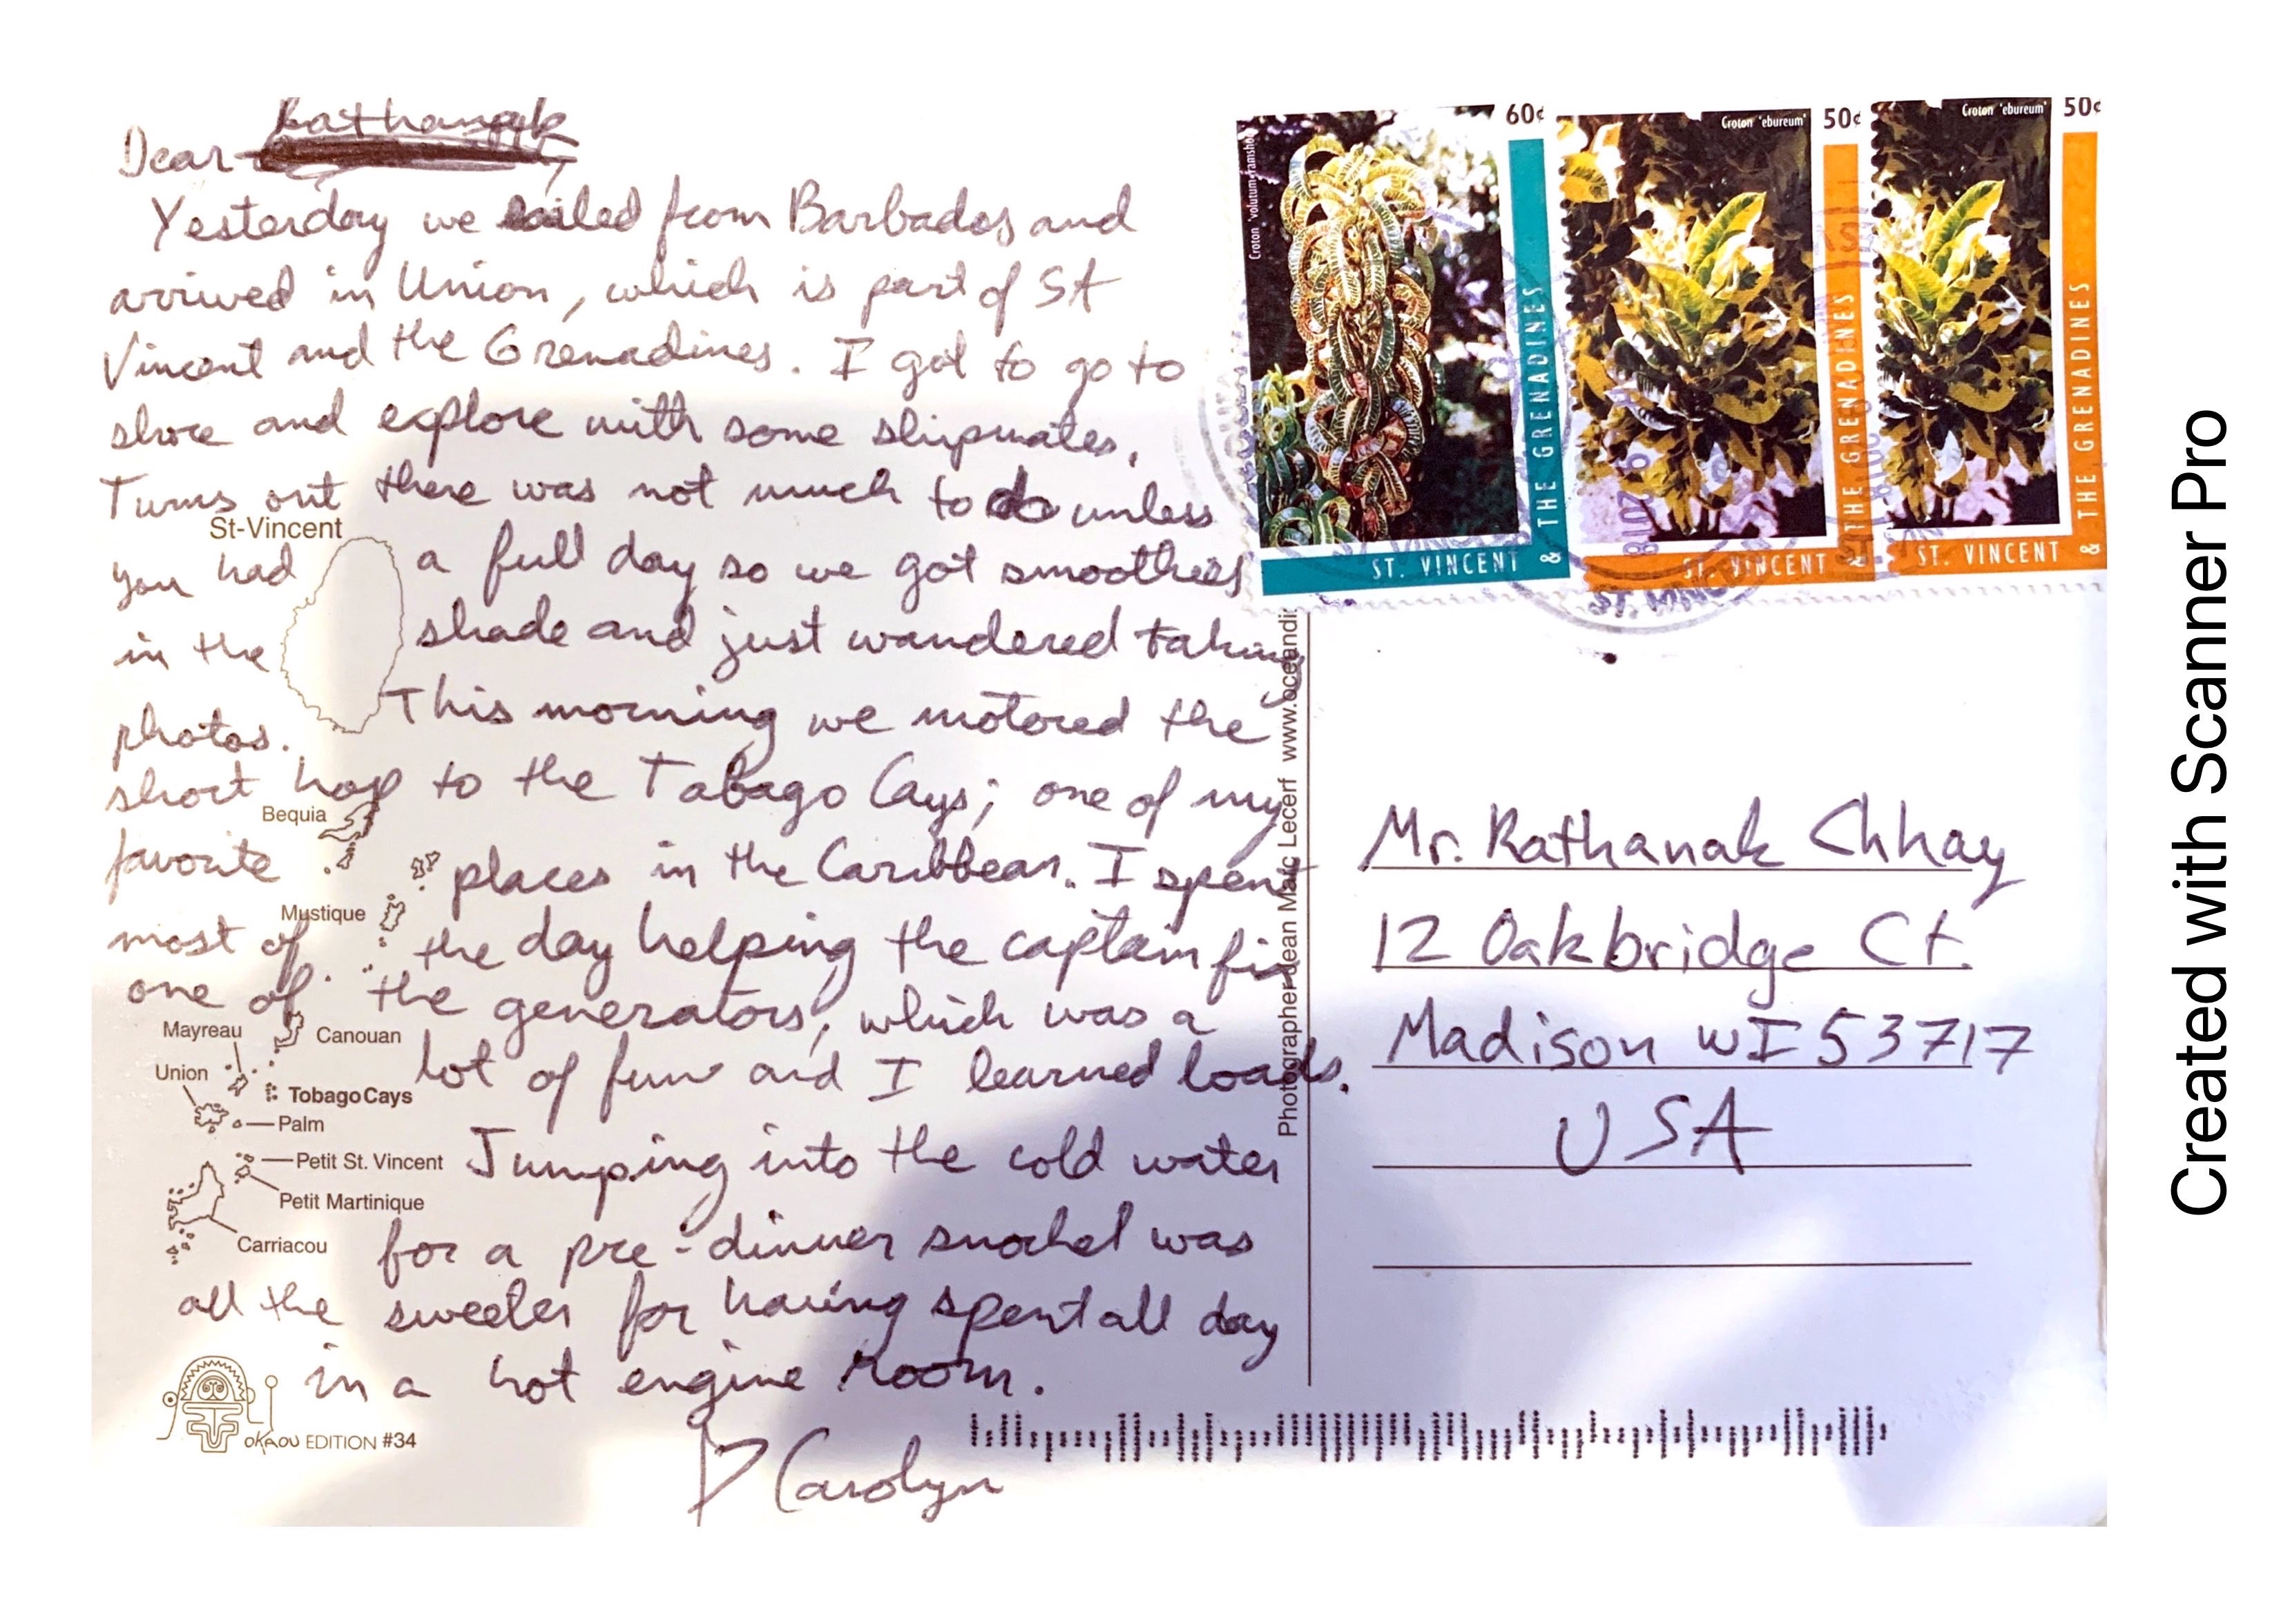 Dear Rathanak,
Yesterday we sailed from Barbados and
arrived in Union, which is part of St
Vincent and the Grenadines. I got to go to
shore and explore with some shipmates.
Turns out there was not much to do unless
you had a full day so we got smoothies
in the shade and just wandered taking
photos. This morning we motored the
short hop to the Tobago Cays; one of my
favorite places in the Caribbean. I spent
most of the day helping the captain fix
one of the generators, which was a
lot of fun and I learned loads.
Jumping into the cold water
for a pre-dinner snorkel was
all the sweeter for having spent all day
in a hot engine room.
♡ Carolyn
St-Vincent
Bequia
Mustique
Mayreau
Canouan
Union
Tobago Cays
Palm
Petit St. Vincent
Petit Martinique
Carriacou
OKAOU EDITION #34
Photographer Jean Marc Lecerf www.oceandi
60¢
ST. VINCENT & THE GRENADINES
Croton 'ebureum'
50¢
ST. VINCENT & THE GRENADINES
Croton 'ebureum'
50¢
ST. VINCENT & THE GRENADINES
Mr. Rathanak Chhay
12 Oakbridge Ct.
Madison WI 53717
USA
Created with Scanner Pro